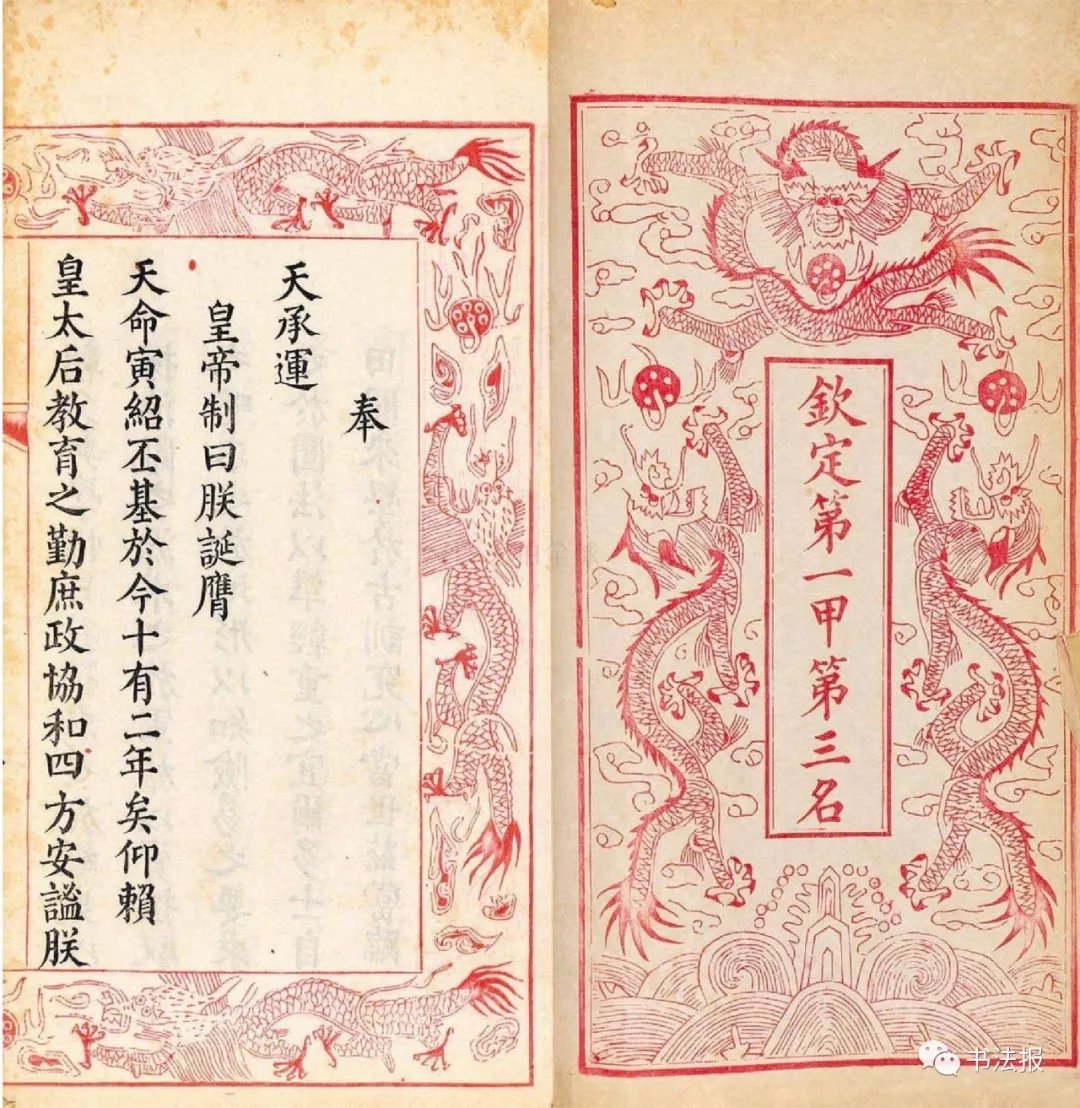 欽定第一甲第三名
奉
天承運
皇帝制曰朕誕膺
天命寅紹丕基於今十有二年矣仰賴
皇太后教育之勤庶政協和四方安謐朕
书法报